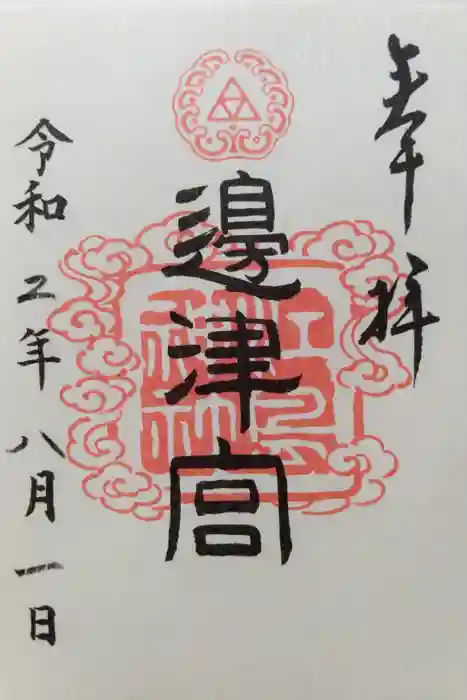 奉拝
邊津宮
令和二年八月一日